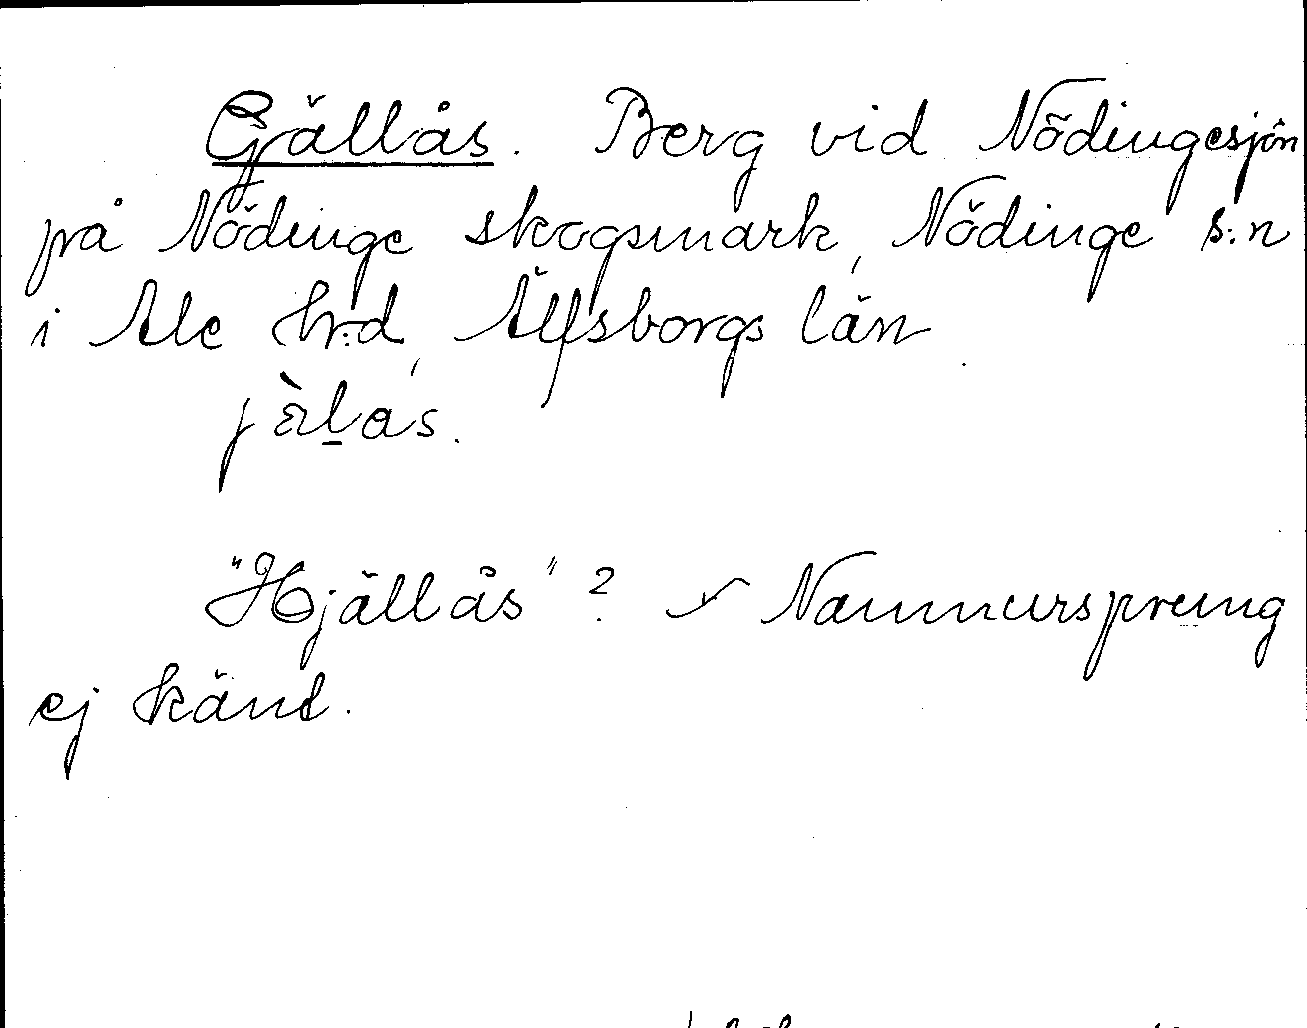 Gjällås. Berg vid Nödingesjön
på Nödinge skogsmark, Nödinge s:n
i Ale hrd, Älfsborgs län.
"Hjällås"? Namnursprung
ej känt.